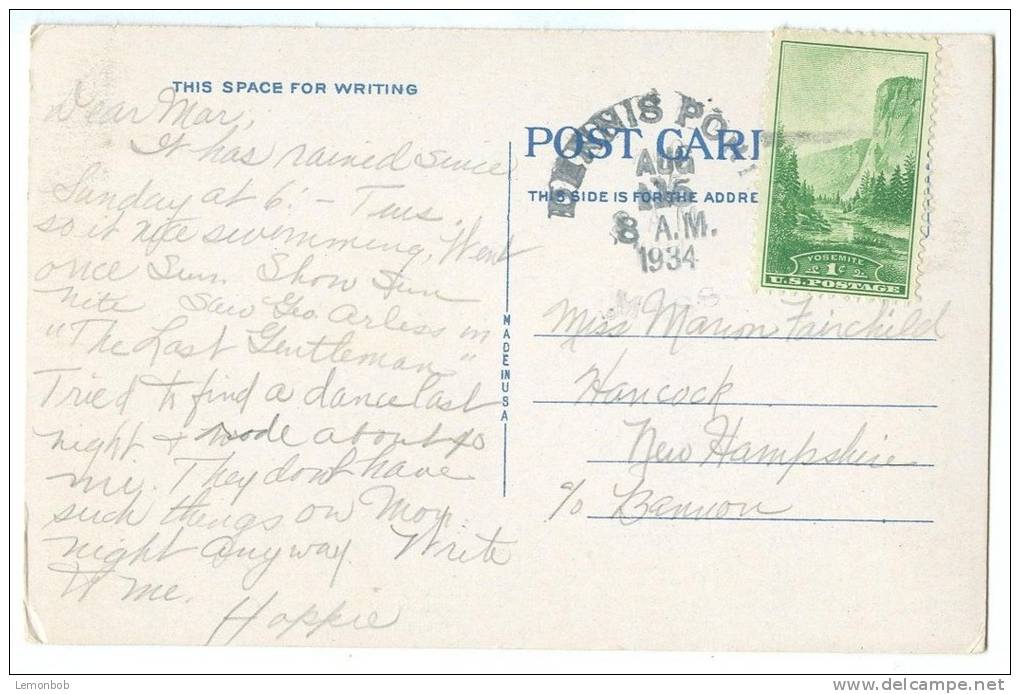 THIS SPACE FOR WRITING
Dear Mar,
It has rained since
Sunday at 6. - Tues.
so it nice swimming, Went
once Sun. Show Sun
nite Saw Geo Arliss in
"The Last Gentleman"
Tried to find a dance last
night + rode about 40
mi. They don't have
such things on Mon.
night anyway. Write
to me.
Hoppie
POST CARD
THIS SIDE IS FOR THE ADDRE
DENNIS PORT
AUG
15
8 A.M.
1934
YOSEMITE
1¢
U.S. POSTAGE
MADE IN USA
Miss Marion Fairchild
Hancock
New Hampshire
c/o Bannon
Lemonbob
delcampe.net